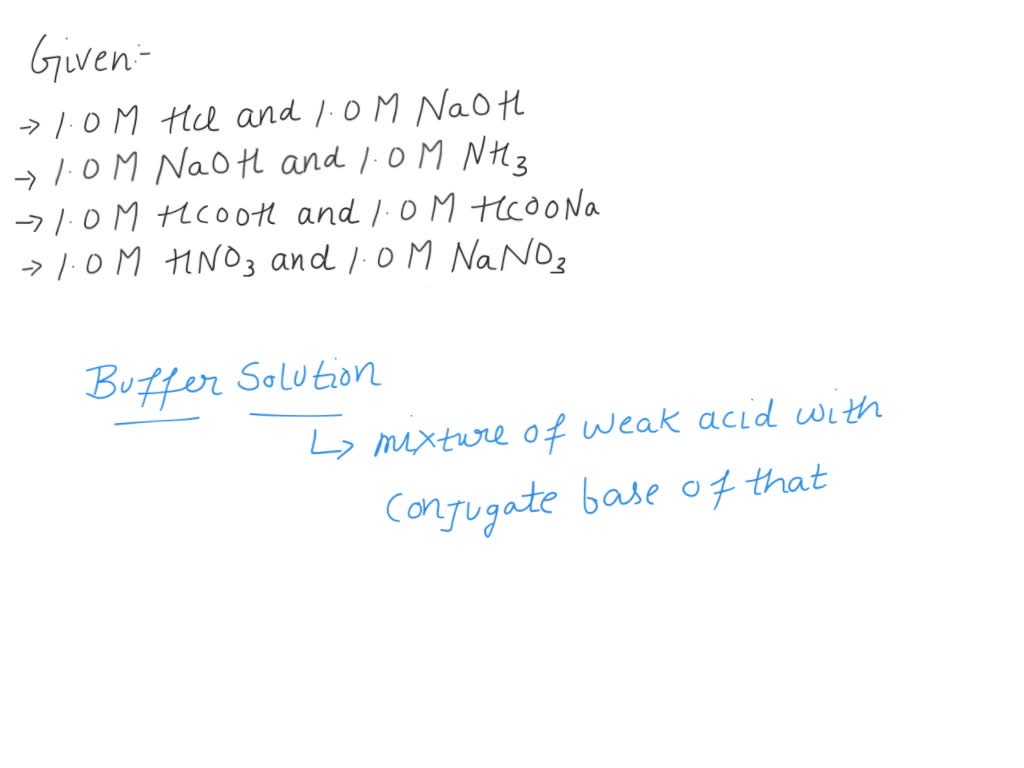 Given:-
→ 1.0 M HCl and 1.0 M NaOH
→ 1.0 M NaOH and 1.0 M NH3
→ 1.0 M HCOOH and 1.0 M HCOONa
→ 1.0 M HNO3 and 1.0 M NaNO3
Buffer Solution
↳ mixture of weak acid with
conjugate base of that